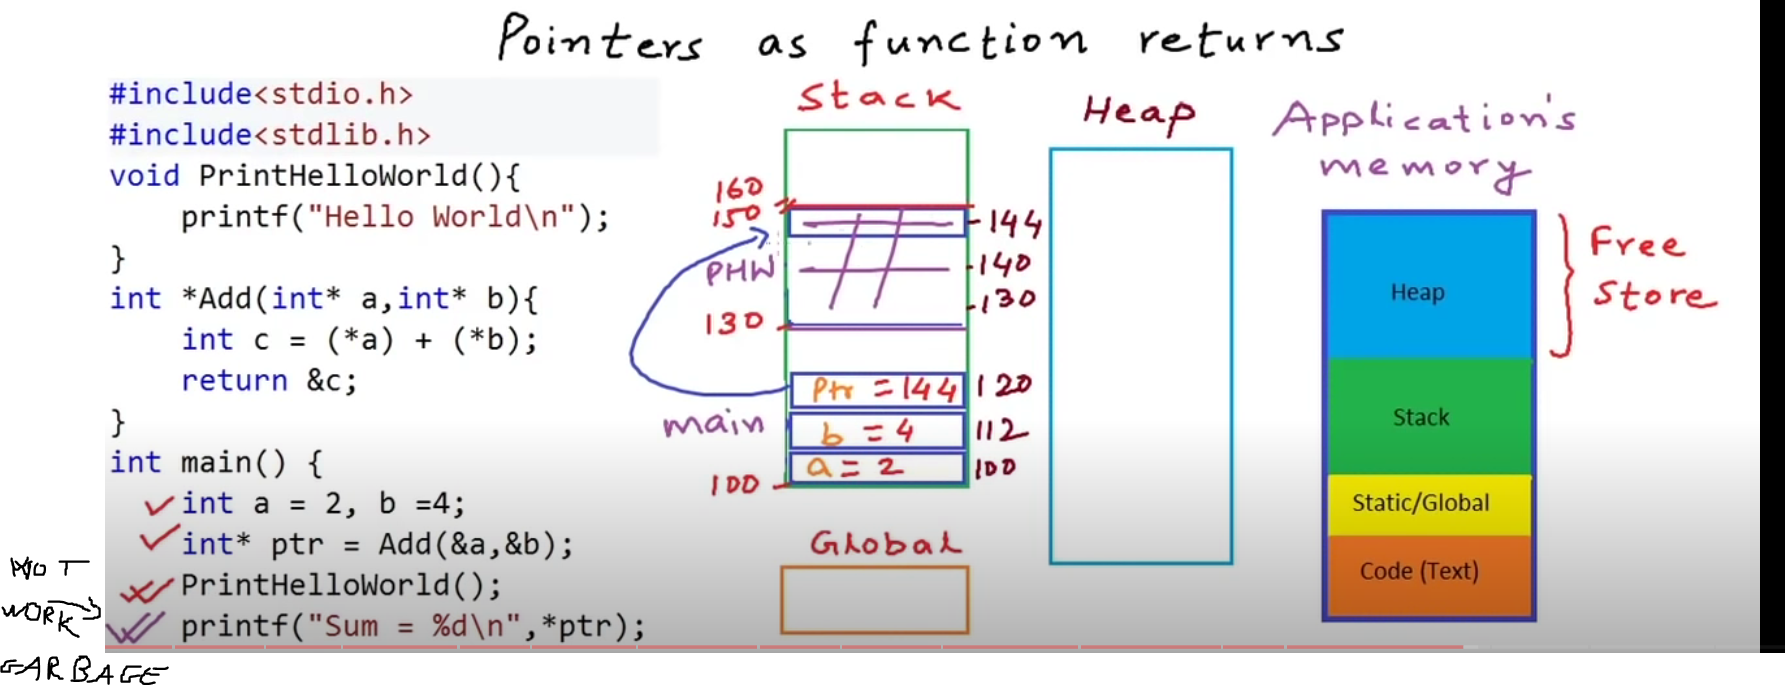 Pointers as function returns
#include<stdio.h>
#include<stdlib.h>
void PrintHelloWorld(){
printf("Hello World\n");
}
int *Add(int* a,int* b){
int c = (*a) + (*b);
return &c;
}
int main() {
int a = 2, b =4;
int* ptr = Add(&a,&b);
PrintHelloWorld();
printf("Sum = %d\n",*ptr);
NOT
WORK
GARBAGE
Stack
160
150
144
PHW
140
130
130
Ptr = 144
120
main
b = 4
112
a = 2
100
100
Global
Heap
Application's
memory
Heap
Stack
Static/Global
Code (Text)
Free
Store